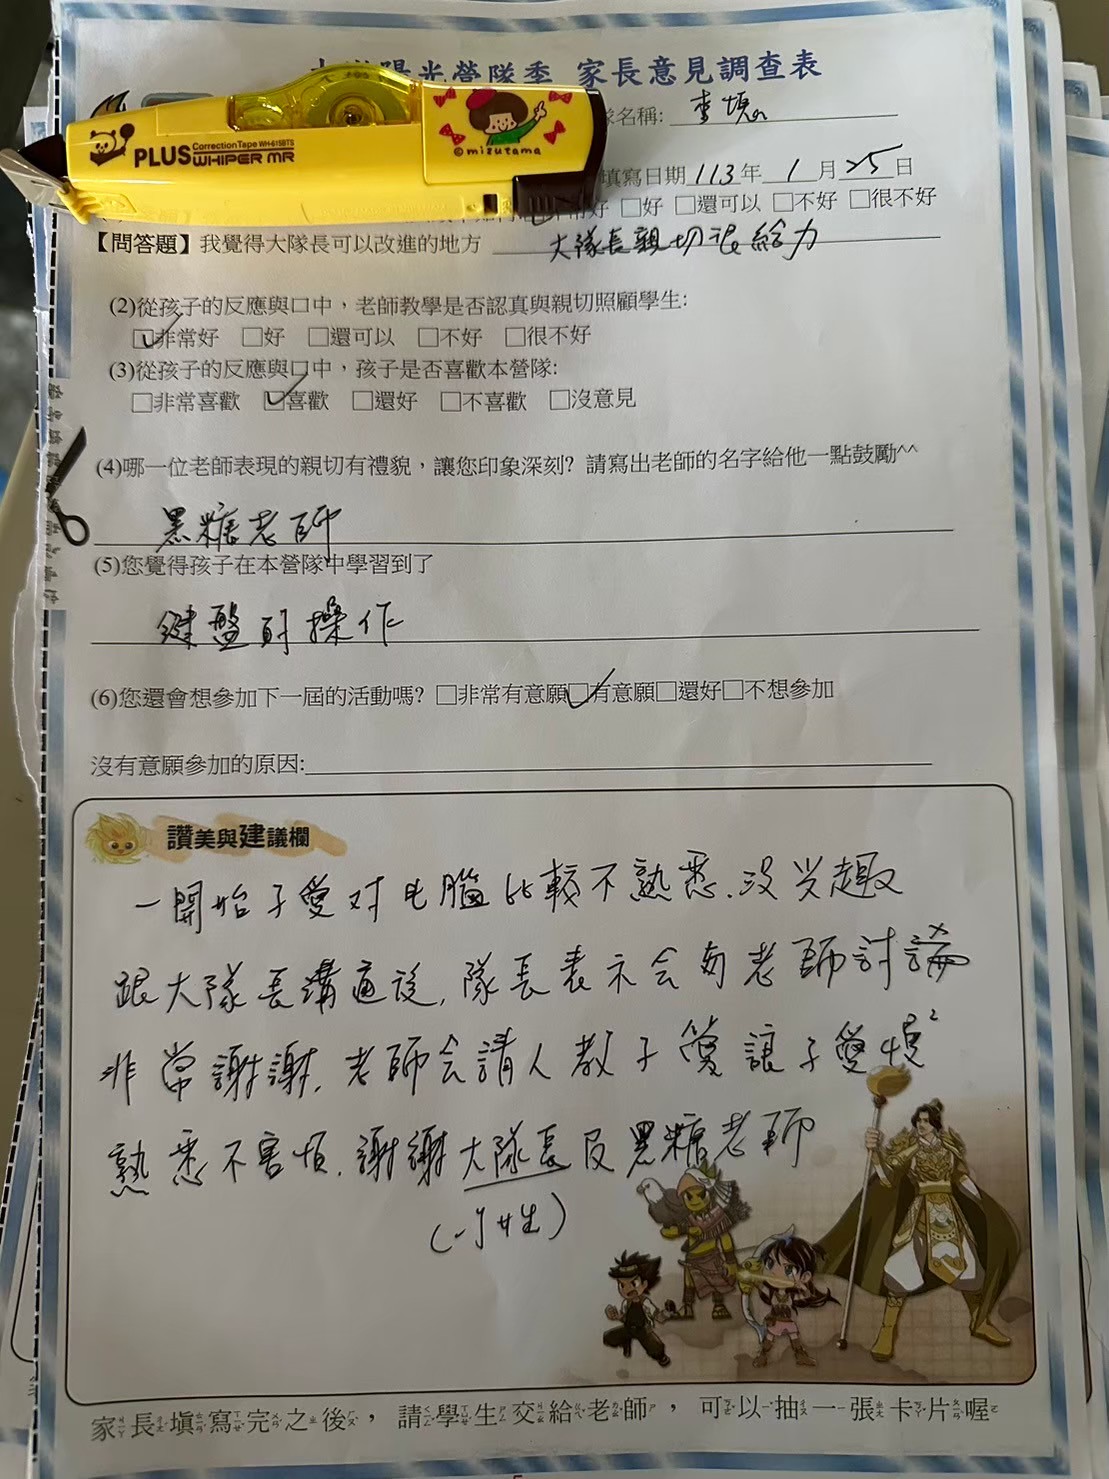 陽光營隊季 家長意見調查表
隊名稱:
PLUS CorrectionTape WH-615BTS
WHIPER MR
©mizutama
填寫日期 113 年 1 月 25 日
好 □好 □還可以 □不好 □很不好
【問答題】我覺得大隊長可以改進的地方 大隊長親切很給力
(2)從孩子的反應與口中，老師教學是否認真與親切照顧學生:
□非常好 □好 □還可以 □不好 □很不好
(3)從孩子的反應與口中，孩子是否喜歡本營隊:
□非常喜歡 □喜歡 □還好 □不喜歡 □沒意見
(4)哪一位老師表現的親切有禮貌，讓您印象深刻? 請寫出老師的名字給他一點鼓勵^^
黑糖老師
(5)您覺得孩子在本營隊中學習到了
鍵盤的操作
(6)您還會想參加下一屆的活動嗎? □非常有意願□有意願□還好□不想參加
沒有意願參加的原因:
讚美與建議欄
一開始子愛对电腦比較不熟悉.没兴趣
跟大隊長溝通後,隊長表示会與老師討論
非常謝謝.老師会請人教子愛讓子愛慢²
熟悉不害怕.謝謝大隊長及黑糖老師
家長填寫完之後，請學生交給老師，可以抽一張卡片喔